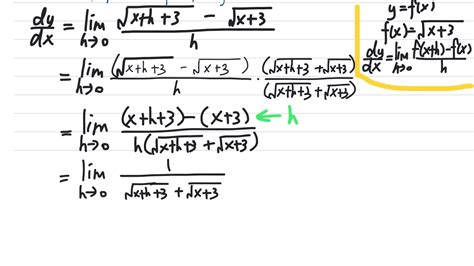 dy/dx = lim h→0 (√(x+h+3) - √(x+3))/h
= lim h→0 (√(x+h+3) - √(x+3))/h · (√(x+h+3) + √(x+3))/(√(x+h+3) + √(x+3))
= lim h→0 ((x+h+3)-(x+3))/(h(√(x+h+3) + √(x+3))) ← h
= lim h→0 1/(√(x+h+3) + √(x+3))
y = f(x)
f(x) = √(x+3)
dy/dx = lim h→0 (f(x+h)-f(x))/h